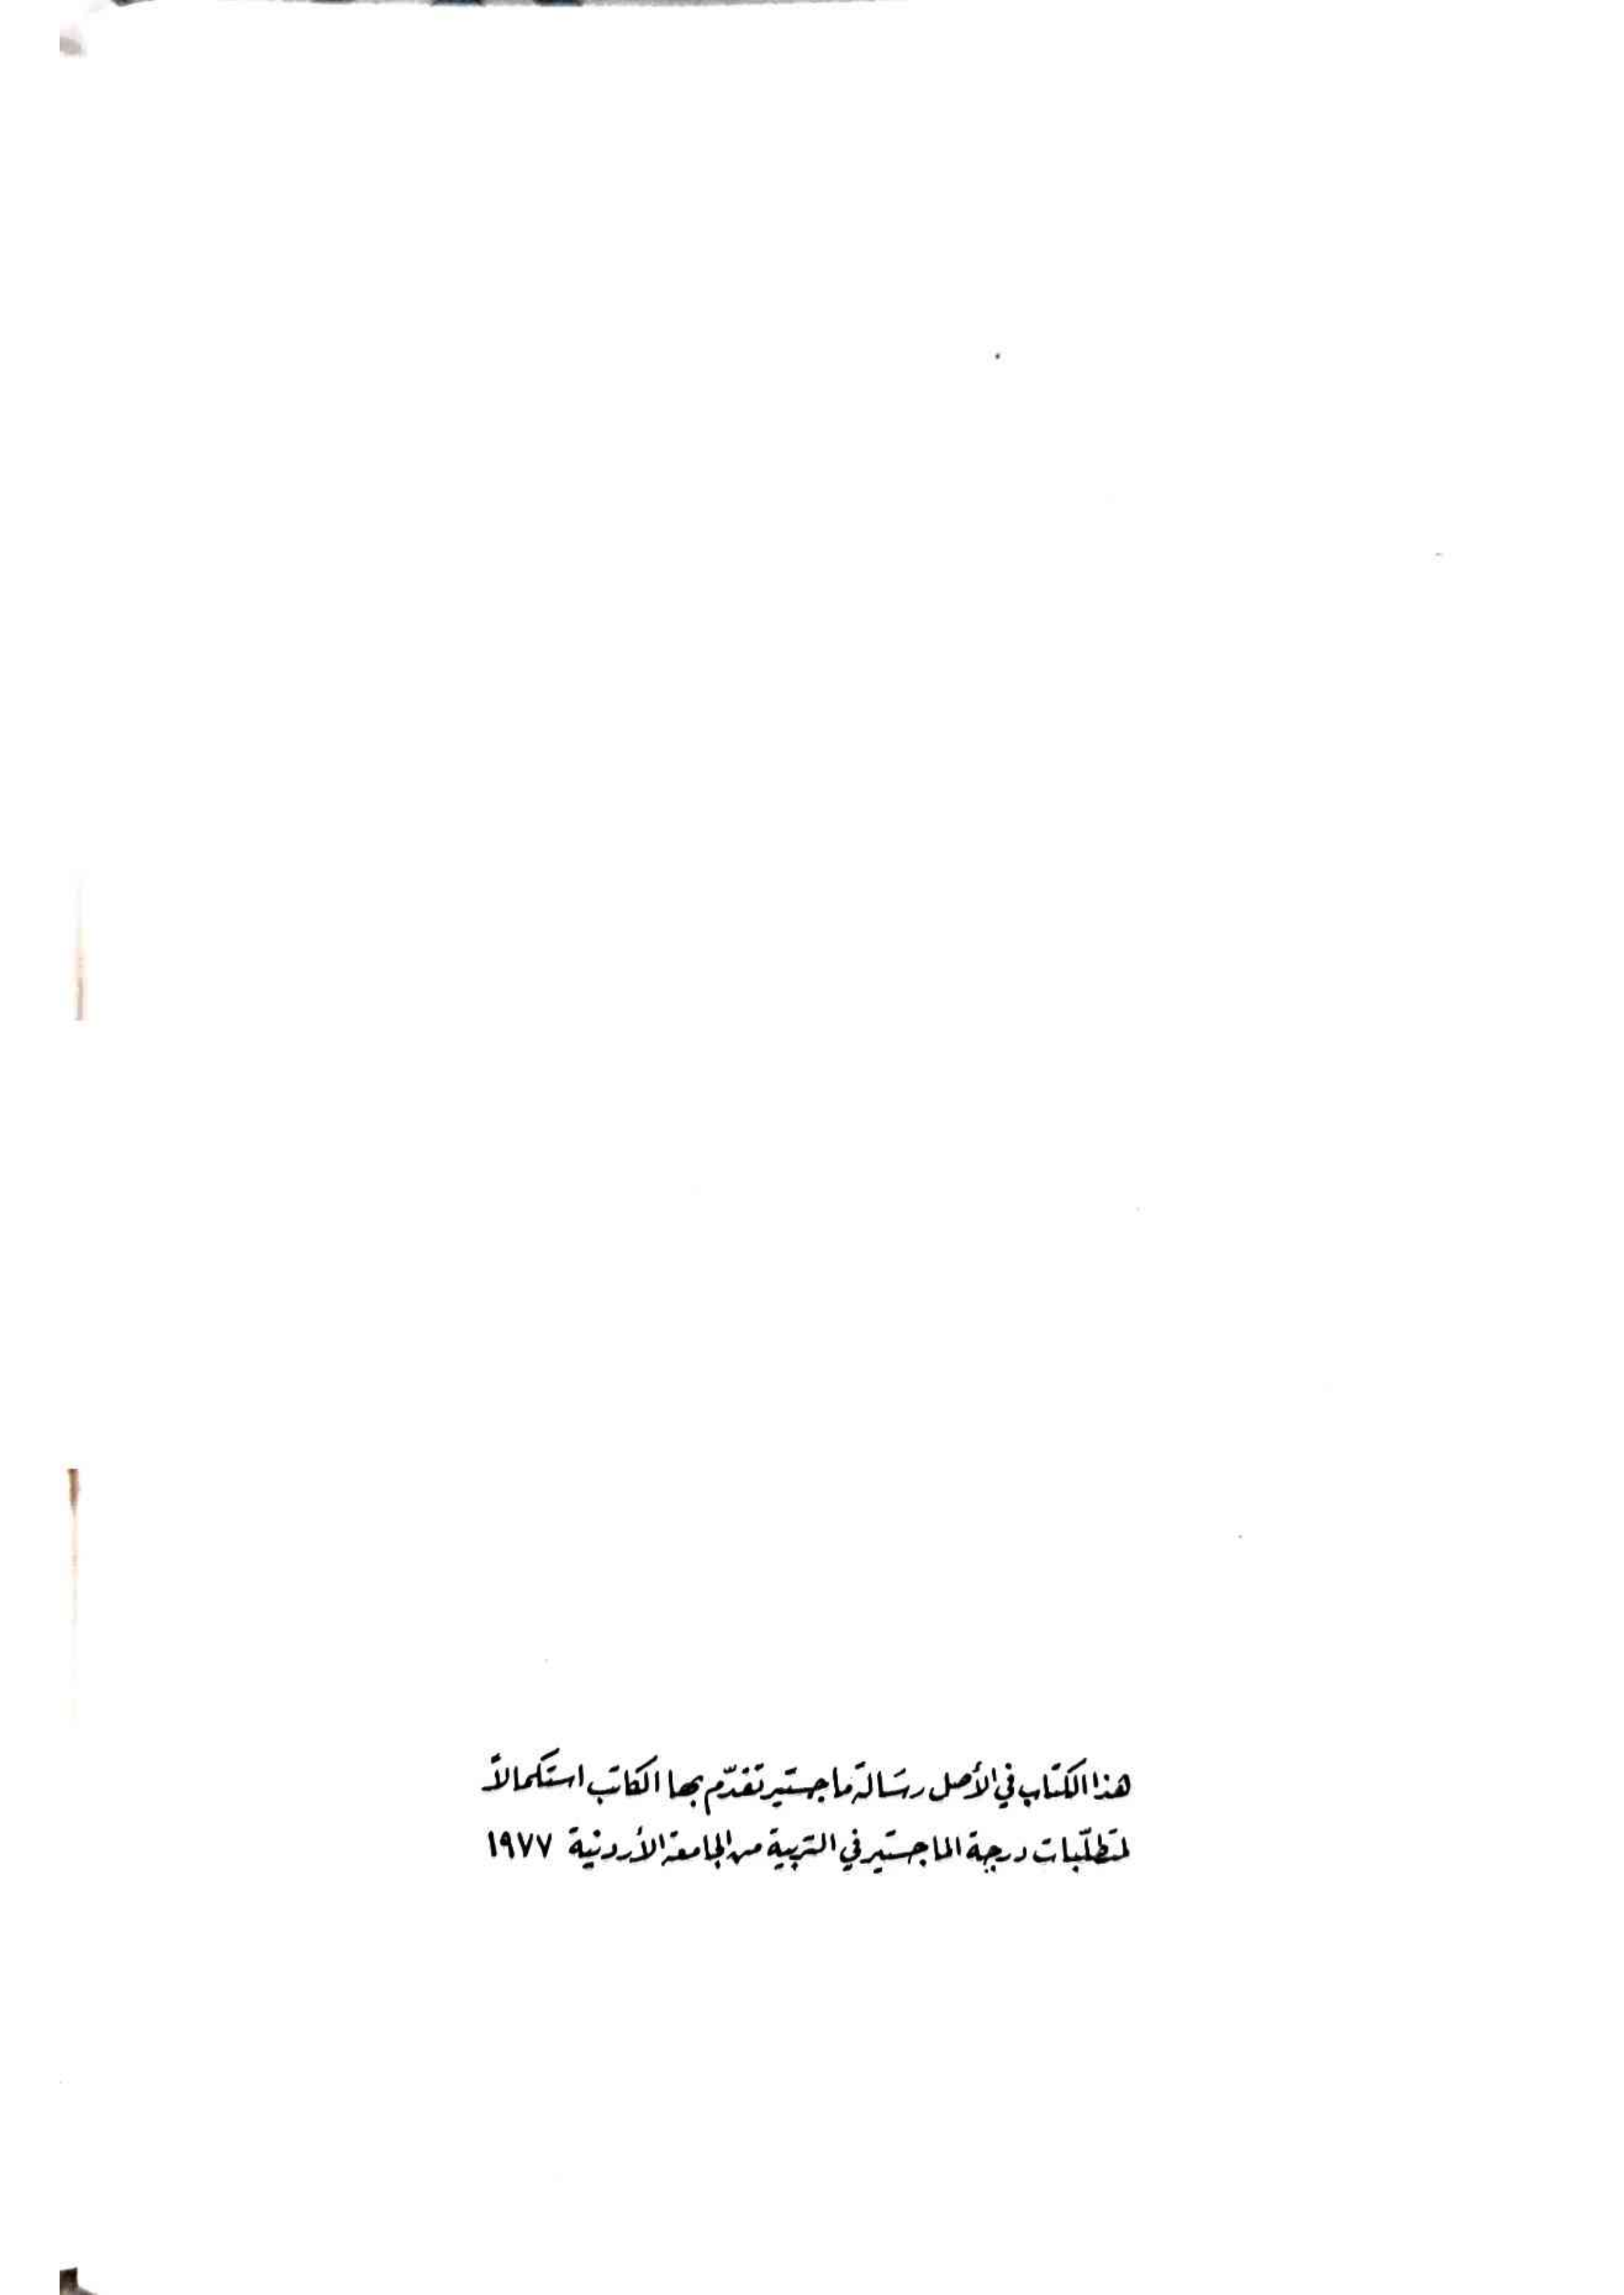 هذا الكتاب في الأصل رسَالة ماجستير تقدّم بها الكاتب استكمالاً
لمتطلّبات درجة الماجستير في التربية من الجامعة الأردنية ١٩٧٧